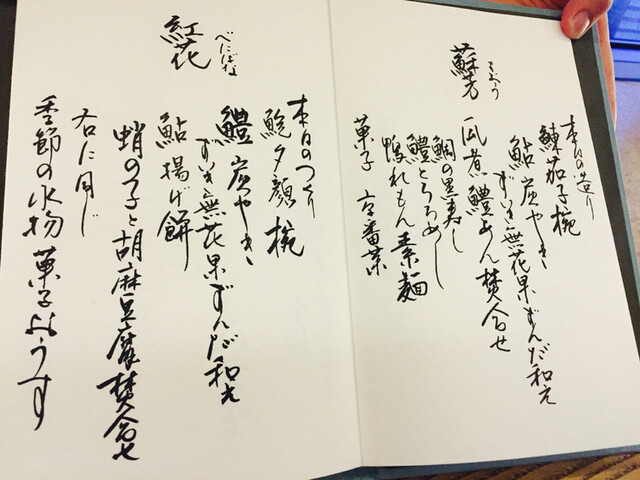 蘇芳
すおう
本日の造り
鰊茄子椀
鮎炭やき
ずいき無花果ずんだ和え
瓜煮鱧あん焚合せ
鯛の黒寿し
鱧とろろめし
鴨れもん素麺
菓子 京番茶
紅花
べにばな
本日のつくり
鮑夕顔椀
鱧炭やき
ずいき無花果ずんだ和え
鮎揚げ餅
蛸の子と胡麻豆腐焚合せ
右に同じ
季節の水物 菓子 おうす